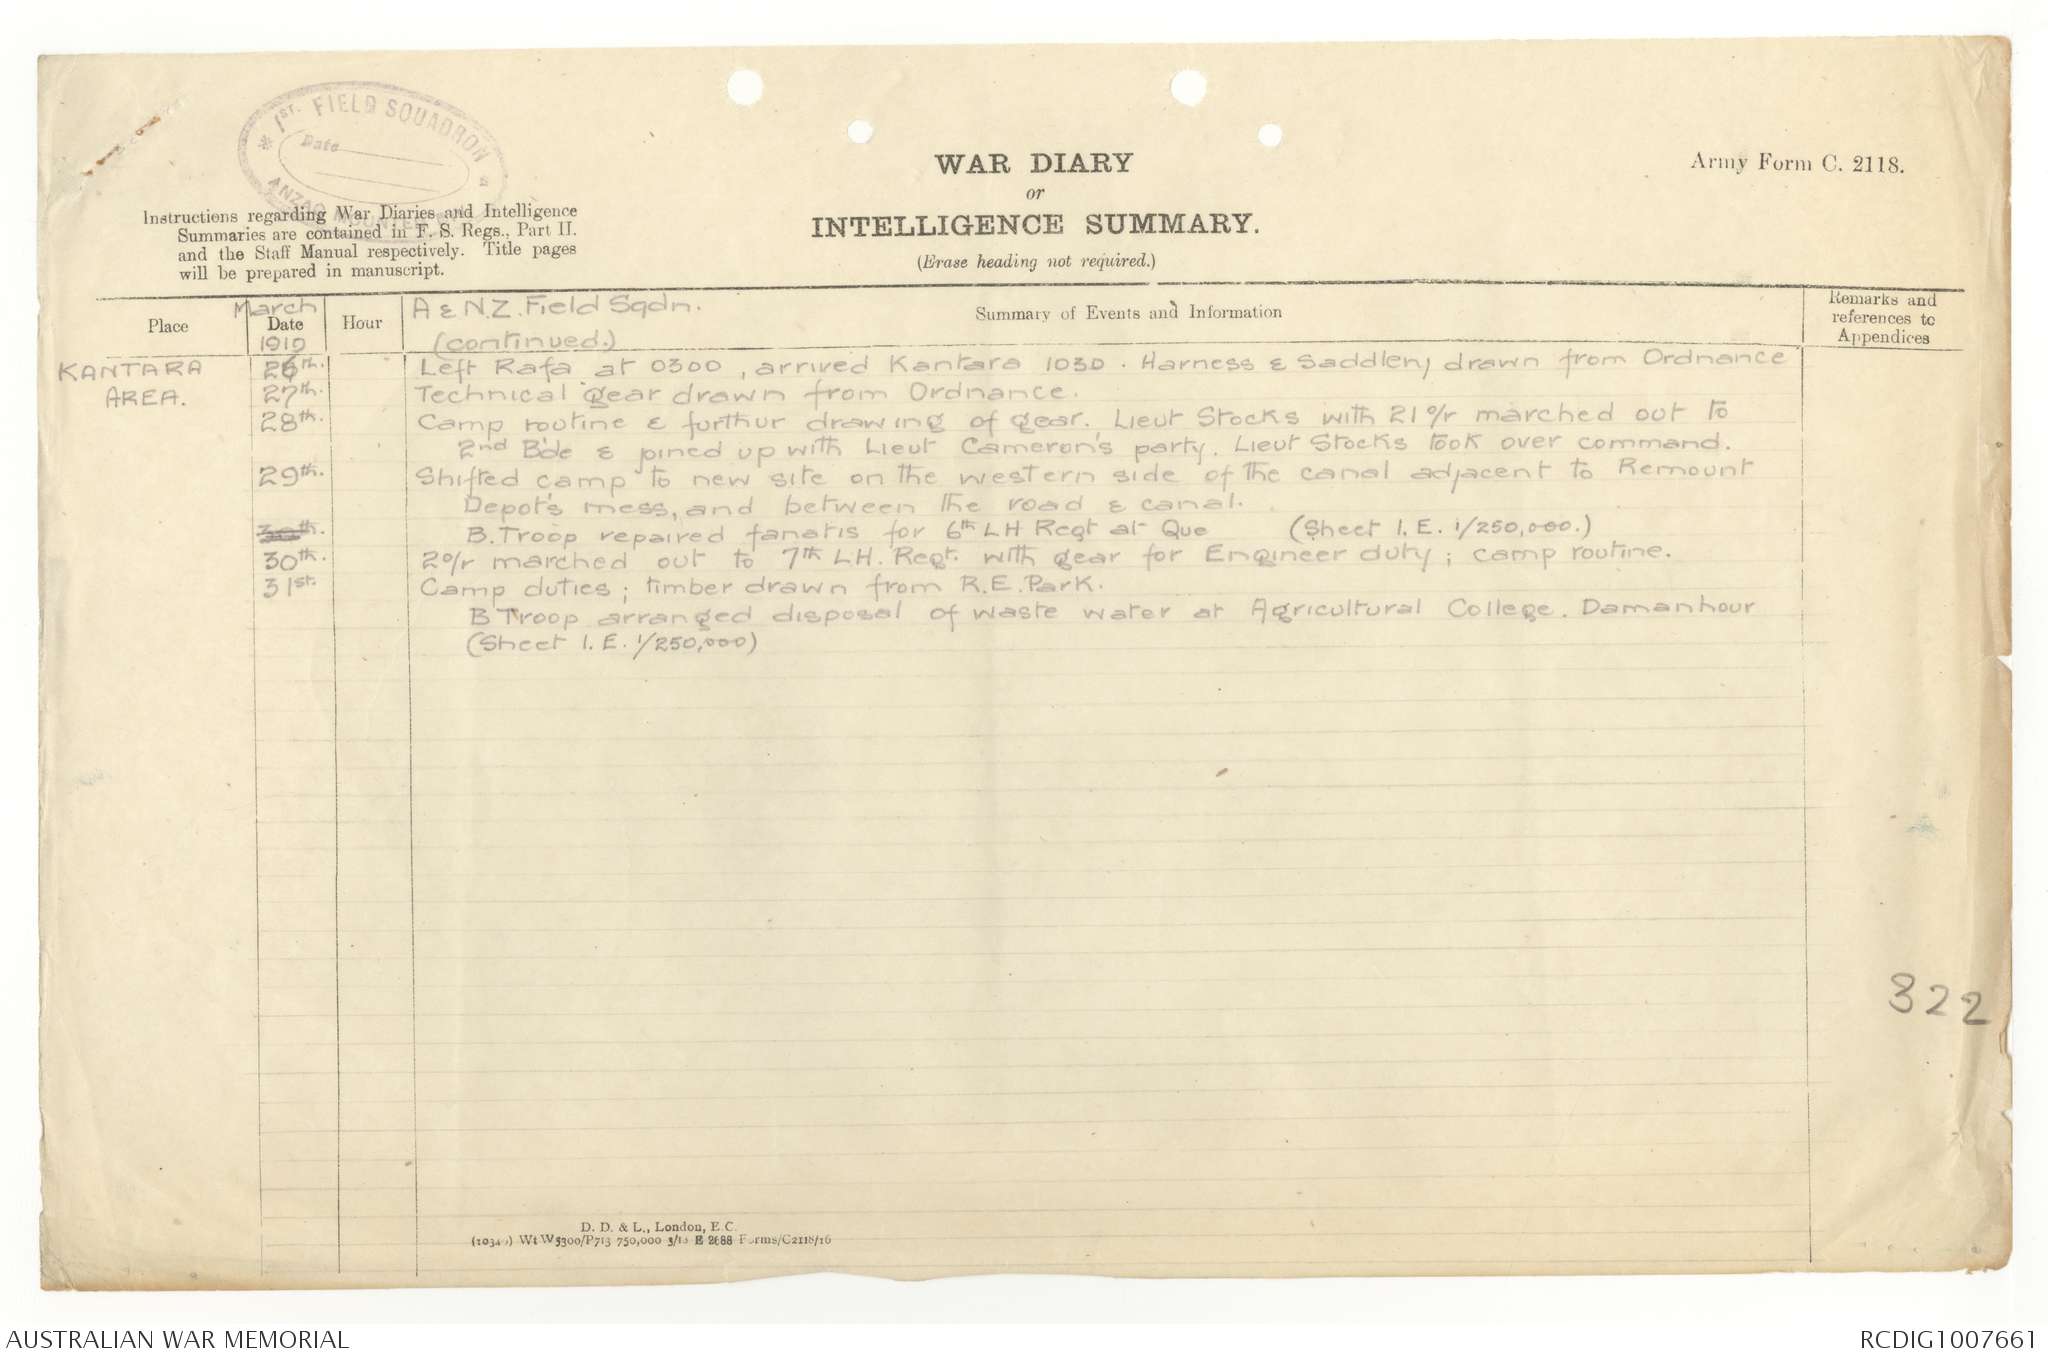 1ST. FIELD SQUADRON
Date
ANZAC MOUNTED
WAR DIARY
or
INTELLIGENCE SUMMARY.
(Erase heading not required.)
Army Form C. 2118.
Instructions regarding War Diaries and Intelligence
Summaries are contained in F. S. Regs., Part II.
and the Staff Manual respectively. Title pages
will be prepared in manuscript.
Place
March
Date
1919
Hour
A & N.Z. Field Sqdn.
(continued.)
Summary of Events and Information
Remarks and
references to
Appendices
KANTARA 26th. Left Rafa at 0300, arrived Kantara 1030. Harness & Saddlery drawn from Ordnance
AREA. 27th. Technical gear drawn from Ordnance.
28th. Camp routine & furthur drawing of gear. Lieut Stocks with 21 o/r marched out to
2nd B'de & joined up with Lieut Cameron's party. Lieut Stocks took over command.
29th. Shifted camp to new site on the western side of the canal adjacent to Remount
Depot's mess, and between the road & canal.
30th. B. Troop repaired fanatis for 6th LH Regt at Que (Sheet 1. E. 1/250,000.)
30th. 2 o/r marched out to 7th LH. Regt. with gear for Engineer duty; camp routine.
31st. Camp duties; timber drawn from R.E. Park.
B Troop arranged disposal of waste water at Agricultural College. Damanhour
(Sheet 1. E. 1/250,000)
322
D. D. & L., London, E.C.
Wt W5300/P713 750,000 3/18 E 2688 Forms/C2118/16
AUSTRALIAN WAR MEMORIAL
RCDIG1007661